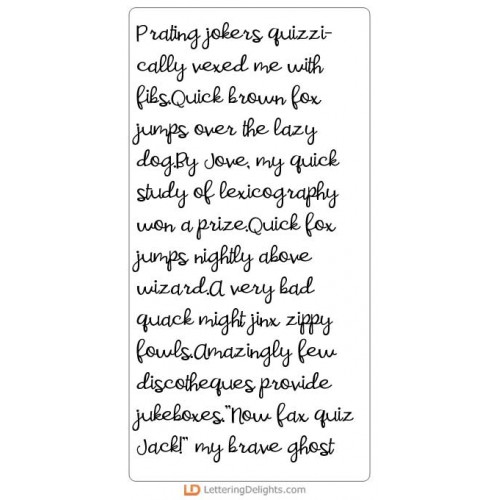 Prating jokers quizzi-
cally vexed me with
fibs.Quick brown fox
jumps over the lazy
dog.By Jove, my quick
study of lexicography
won a prize.Quick fox
jumps nightly above
wizard.A very bad
quack might jinx zippy
fowls.Amazingly few
discotheques provide
jukeboxes."Now fax quiz
Jack!" my brave ghost
LD LetteringDelights.com